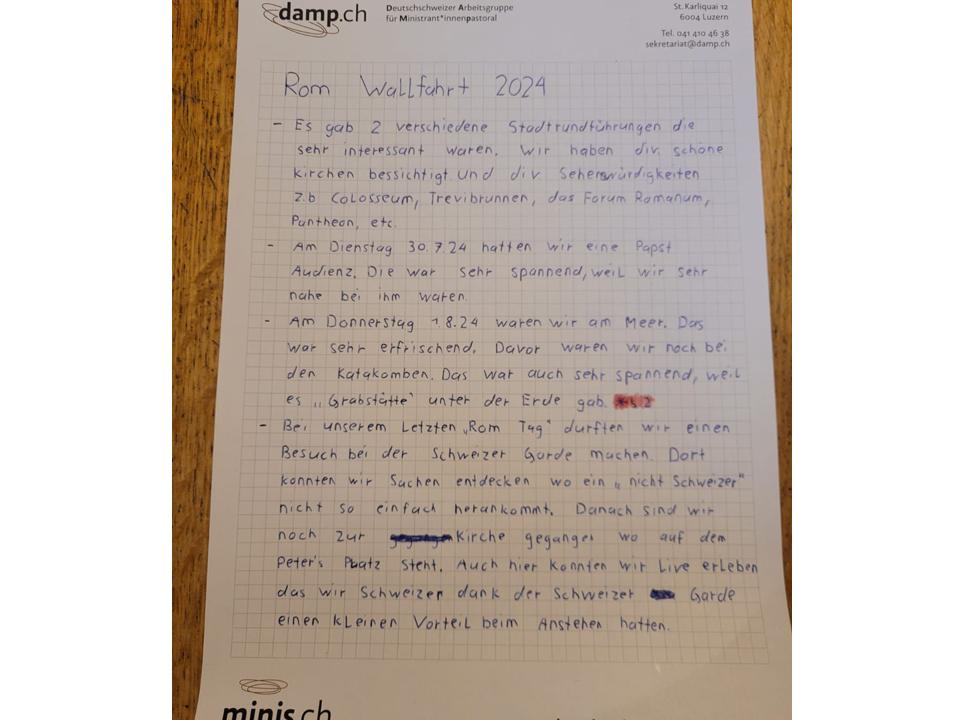 damp.ch
Deutschschweizer Arbeitsgruppe
für Ministrant*innenpastoral
St. Karliquai 12
6004 Luzern
Tel. 041 410 46 38
sekretariat@damp.ch
Rom Wallfahrt 2024
- Es gab 2 verschiedene Stadtrundführungen die
sehr interessant waren. Wir haben div. schöne
kirchen bessichtigt und div Sehenswürdigkeiten
z.b Colosseum, Trevibrunnen, das Forum Romanum,
Pantheon, etc.
- Am Dienstag 30.7.24 hatten wir eine Papst
Audienz. Die war sehr spannend, weil wir sehr
nahe bei ihm waren.
- Am Donnerstag 1.8.24 waren wir am Meer. Das
war sehr erfrischend. Davor waren wir noch bei
den Katakomben. Das war auch sehr spannend, weil
es „Grabstätte" unter der Erde gab.
- Bei unserem Letzten „Rom Tag" durften wir einen
Besuch bei der Schweizer Garde machen. Dort
konnten wir Sachen entdecken wo ein „nicht Schweizer"
nicht so einfach herankommt. Danach sind wir
noch zur Kirche gegangen wo auf dem
Peter's Platz steht. Auch hier konnten wir Live erleben
das wir Schweizer dank der Schweizer Garde
einen kleinen Vorteil beim Anstehen hatten.
minis.ch